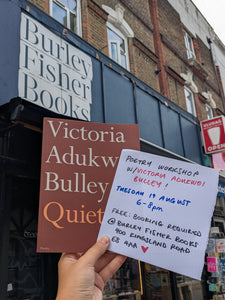 Burley
Fisher
Books
Victoria
Adukwei
Bulley
Quiet
POETRY WORKSHOP
W/VICTORIA ADUKWEI
BULLEY!
TUESDAY 19 AUGUST
6-8pm
FREE: BOOKING REQUIRED
@ BURLEY FISHER BOOKS
400 KINGSLAND ROAD
E8 4AA
OPEN